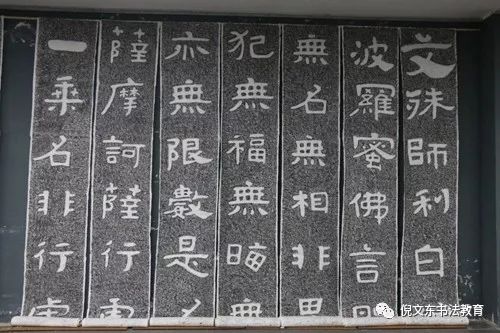 文殊師利白
波羅蜜佛言
無名無相非
犯無福無晦無
亦無限數是名
薩摩訶薩行處
一乘名非行處
倪文东书法教育